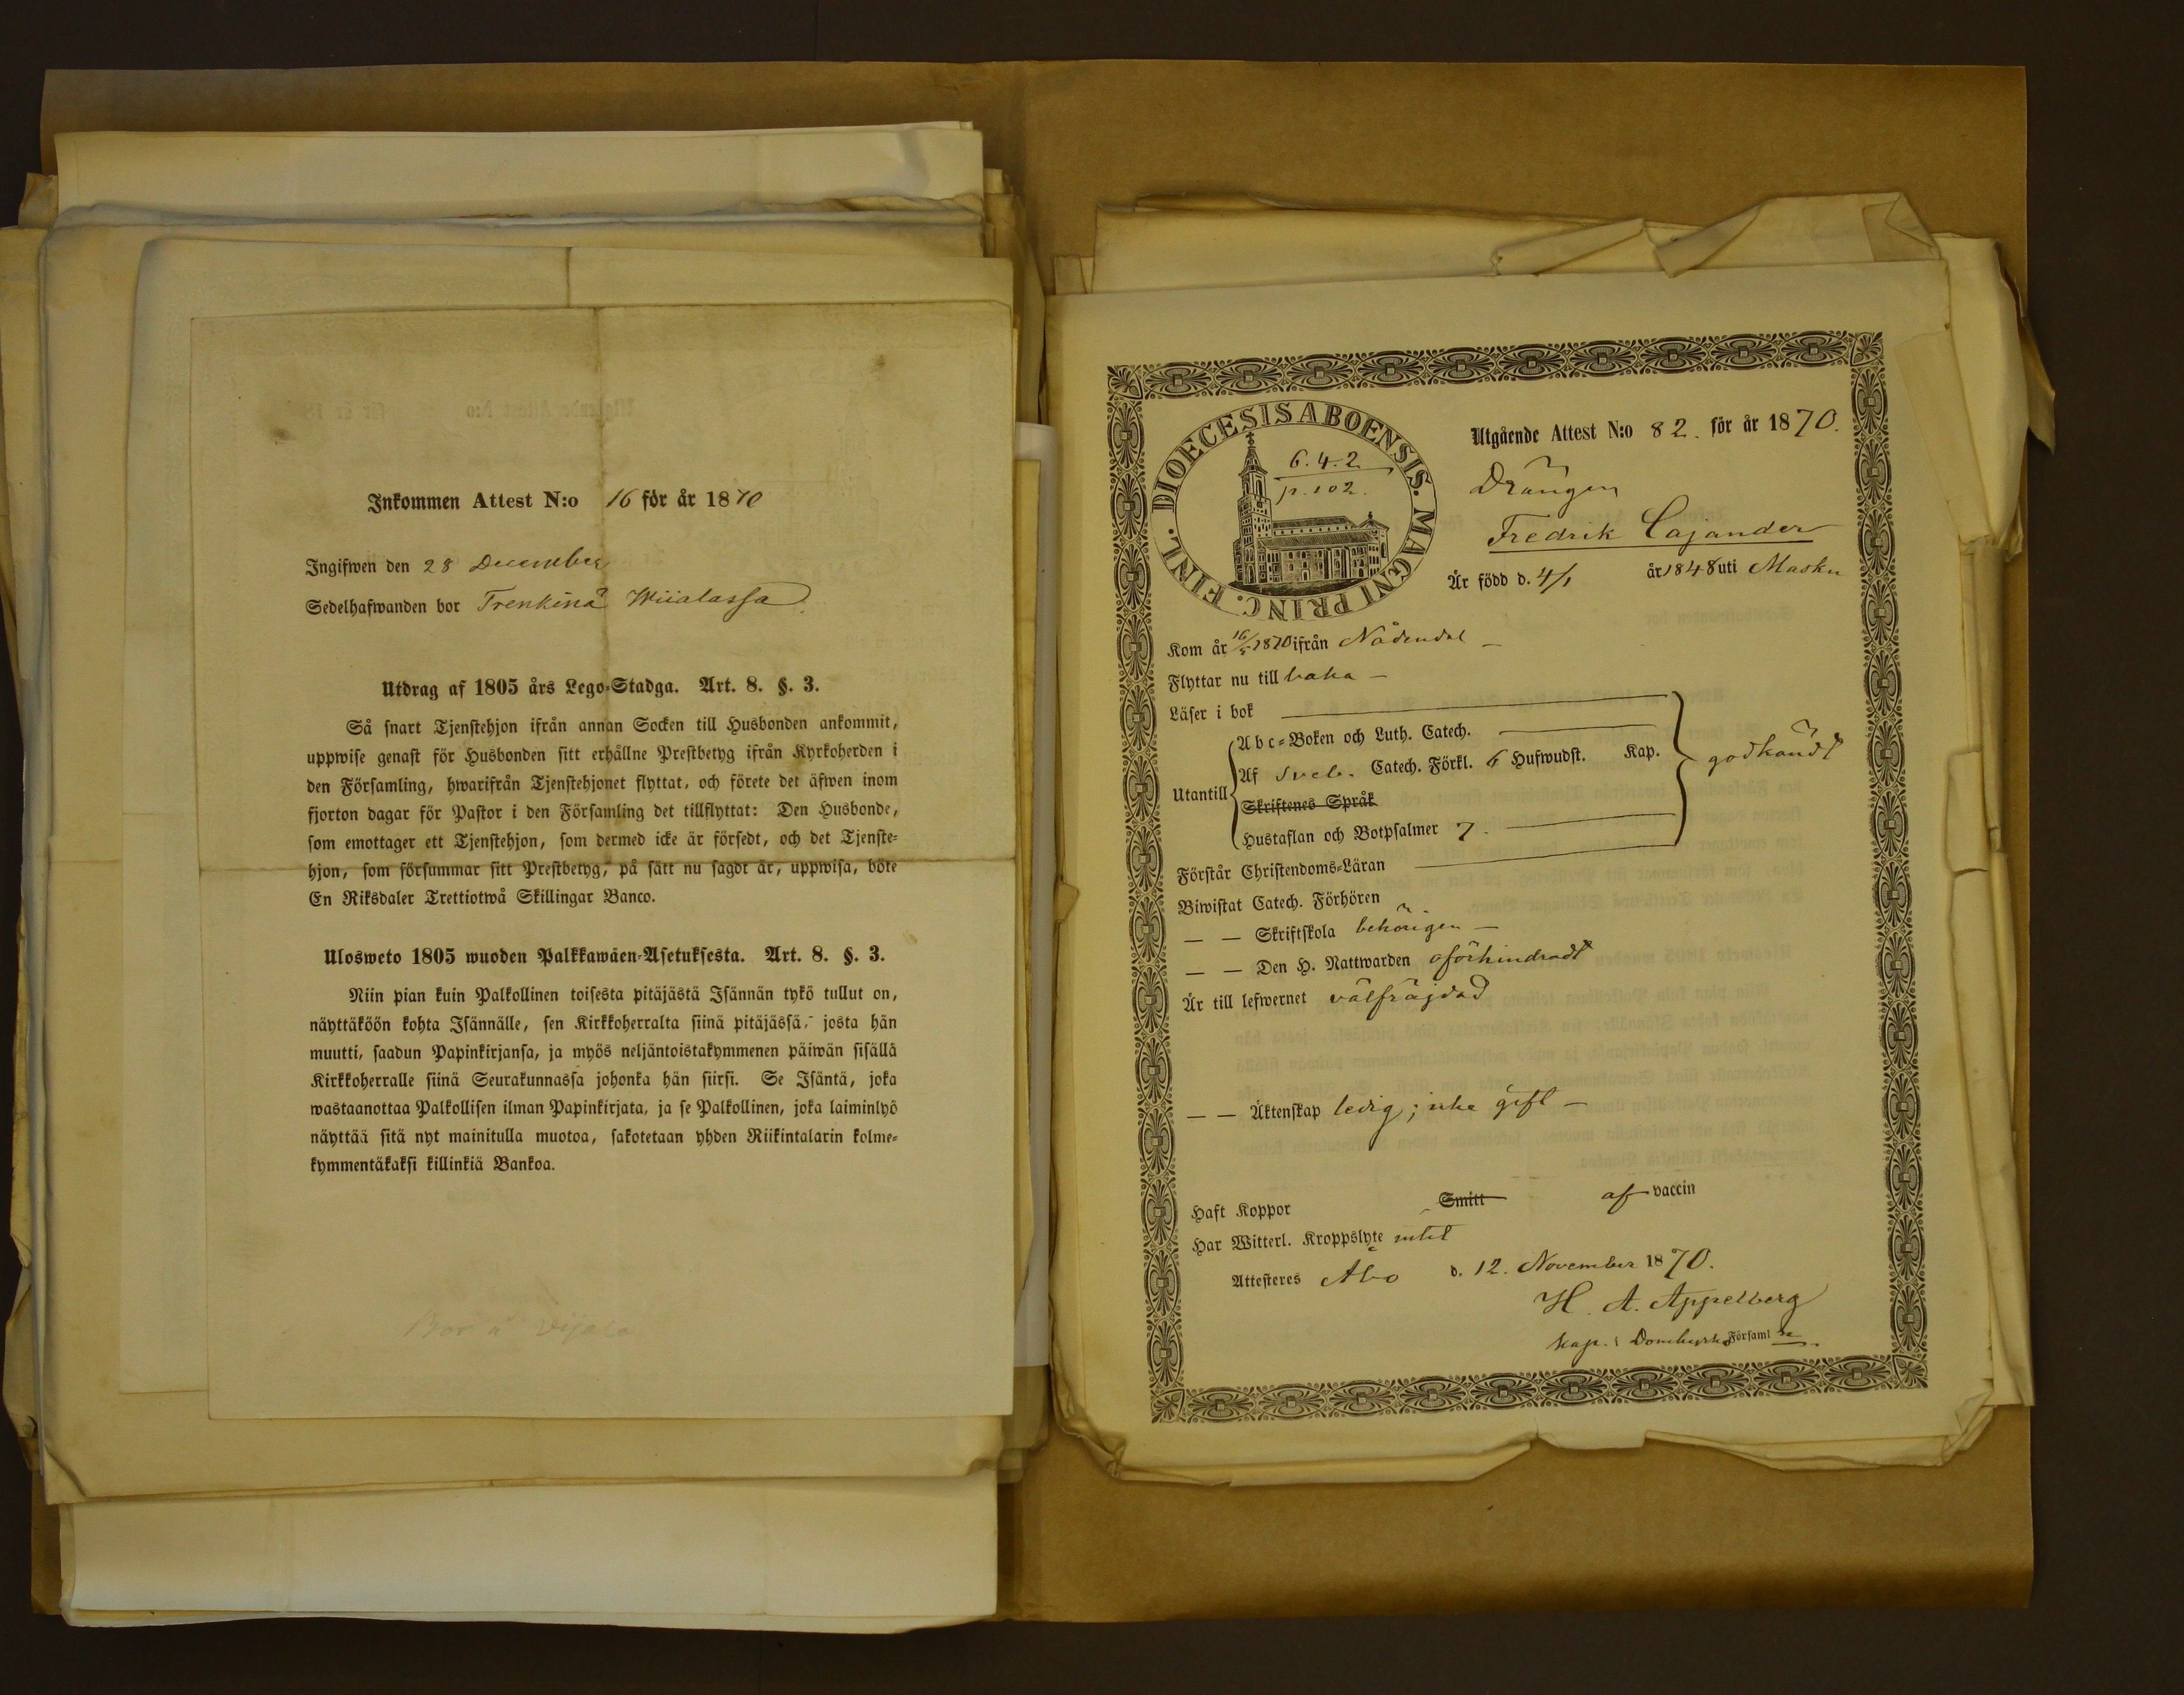 Inkommen Attest N:o 16 för år 1870
Ingifwen den 28 December
Sedelhafwanden bor Trenkinä Wiialassa
Utdrag af 1805 års Lego-Stadga. Art. 8. §. 3.
Så snart Tjenstehjon ifrån annan Socken till Husbonden ankommit,
uppwise genast för Husbonden sitt erhållne Prestbetyg ifrån Kyrkoherden i
den Församling, hwarifrån Tjenstehjonet flyttat, och förete det äfwen inom
fjorton dagar för Pastor i den Församling det tillflyttat: Den Husbonde,
som emottager ett Tjenstehjon, som dermed icke är försedt, och det Tjenste-
hjon, som försummar sitt Prestbetyg, på sätt nu sagdt är, uppwisa, böte
En Riksdaler Trettiotwå Skillingar Banco.
Ulosweto 1805 wuoden Palkkawäen-Asetuksesta. Art. 8. §. 3.
Niin pian kuin Palkollinen toisesta pitäjästä Isännän tykö tullut on,
näyttäköön kohta Isännälle, sen Kirkkoherralta siinä pitäjässä, josta hän
muutti, saadun Papinkirjansa, ja myös neljäntoistakymmenen päiwän sisällä
Kirkkoherralle siinä Seurakunnassa johonka hän siirsi. Se Isäntä, joka
wastaanottaa Palkollisen ilman Papinkirjata, ja se Palkollinen, joka laiminlyö
näyttää sitä nyt mainitulla muotoa, sakotetaan yhden Riikintalarin kolme-
kymmentäkaksi killinkiä Bankoa.
Bor å
DIOECESIS ABOENSIS. MAGNI PRINC. FINL.
6.4.2
p. 102.
Utgående Attest N:o 82. för år 1870.
Drängen
Fredrik Cajander
Är född d. 4/1 år 1848 uti Masku
Kom år 16/5 1870 ifrån Nådendal –
Flyttar nu till baka –
Läser i bok
Utantill
Abc-Boken och Luth. Catech.
Af Sveb. Catech. Förkl. 6 Hufwudst. Kap.
Skriftenes Språk
Hustaflan och Botpsalmer 7.
godkändt
Förstår Christendoms-Läran
Biwistat Catech. Förhören
— — Skriftskola behörigen –
— — Den H. Nattwarden oförhindradt
Är till lefwernet välfräjdad
— — Äktenskap ledig; icke gift –
Haft Koppor Smitt af vaccin
Har Witterl. Kroppslyte intet
Attesteres Åbo d. 12. November 1870.
H. A. Appelberg
Kap. i Domkyrko Församl